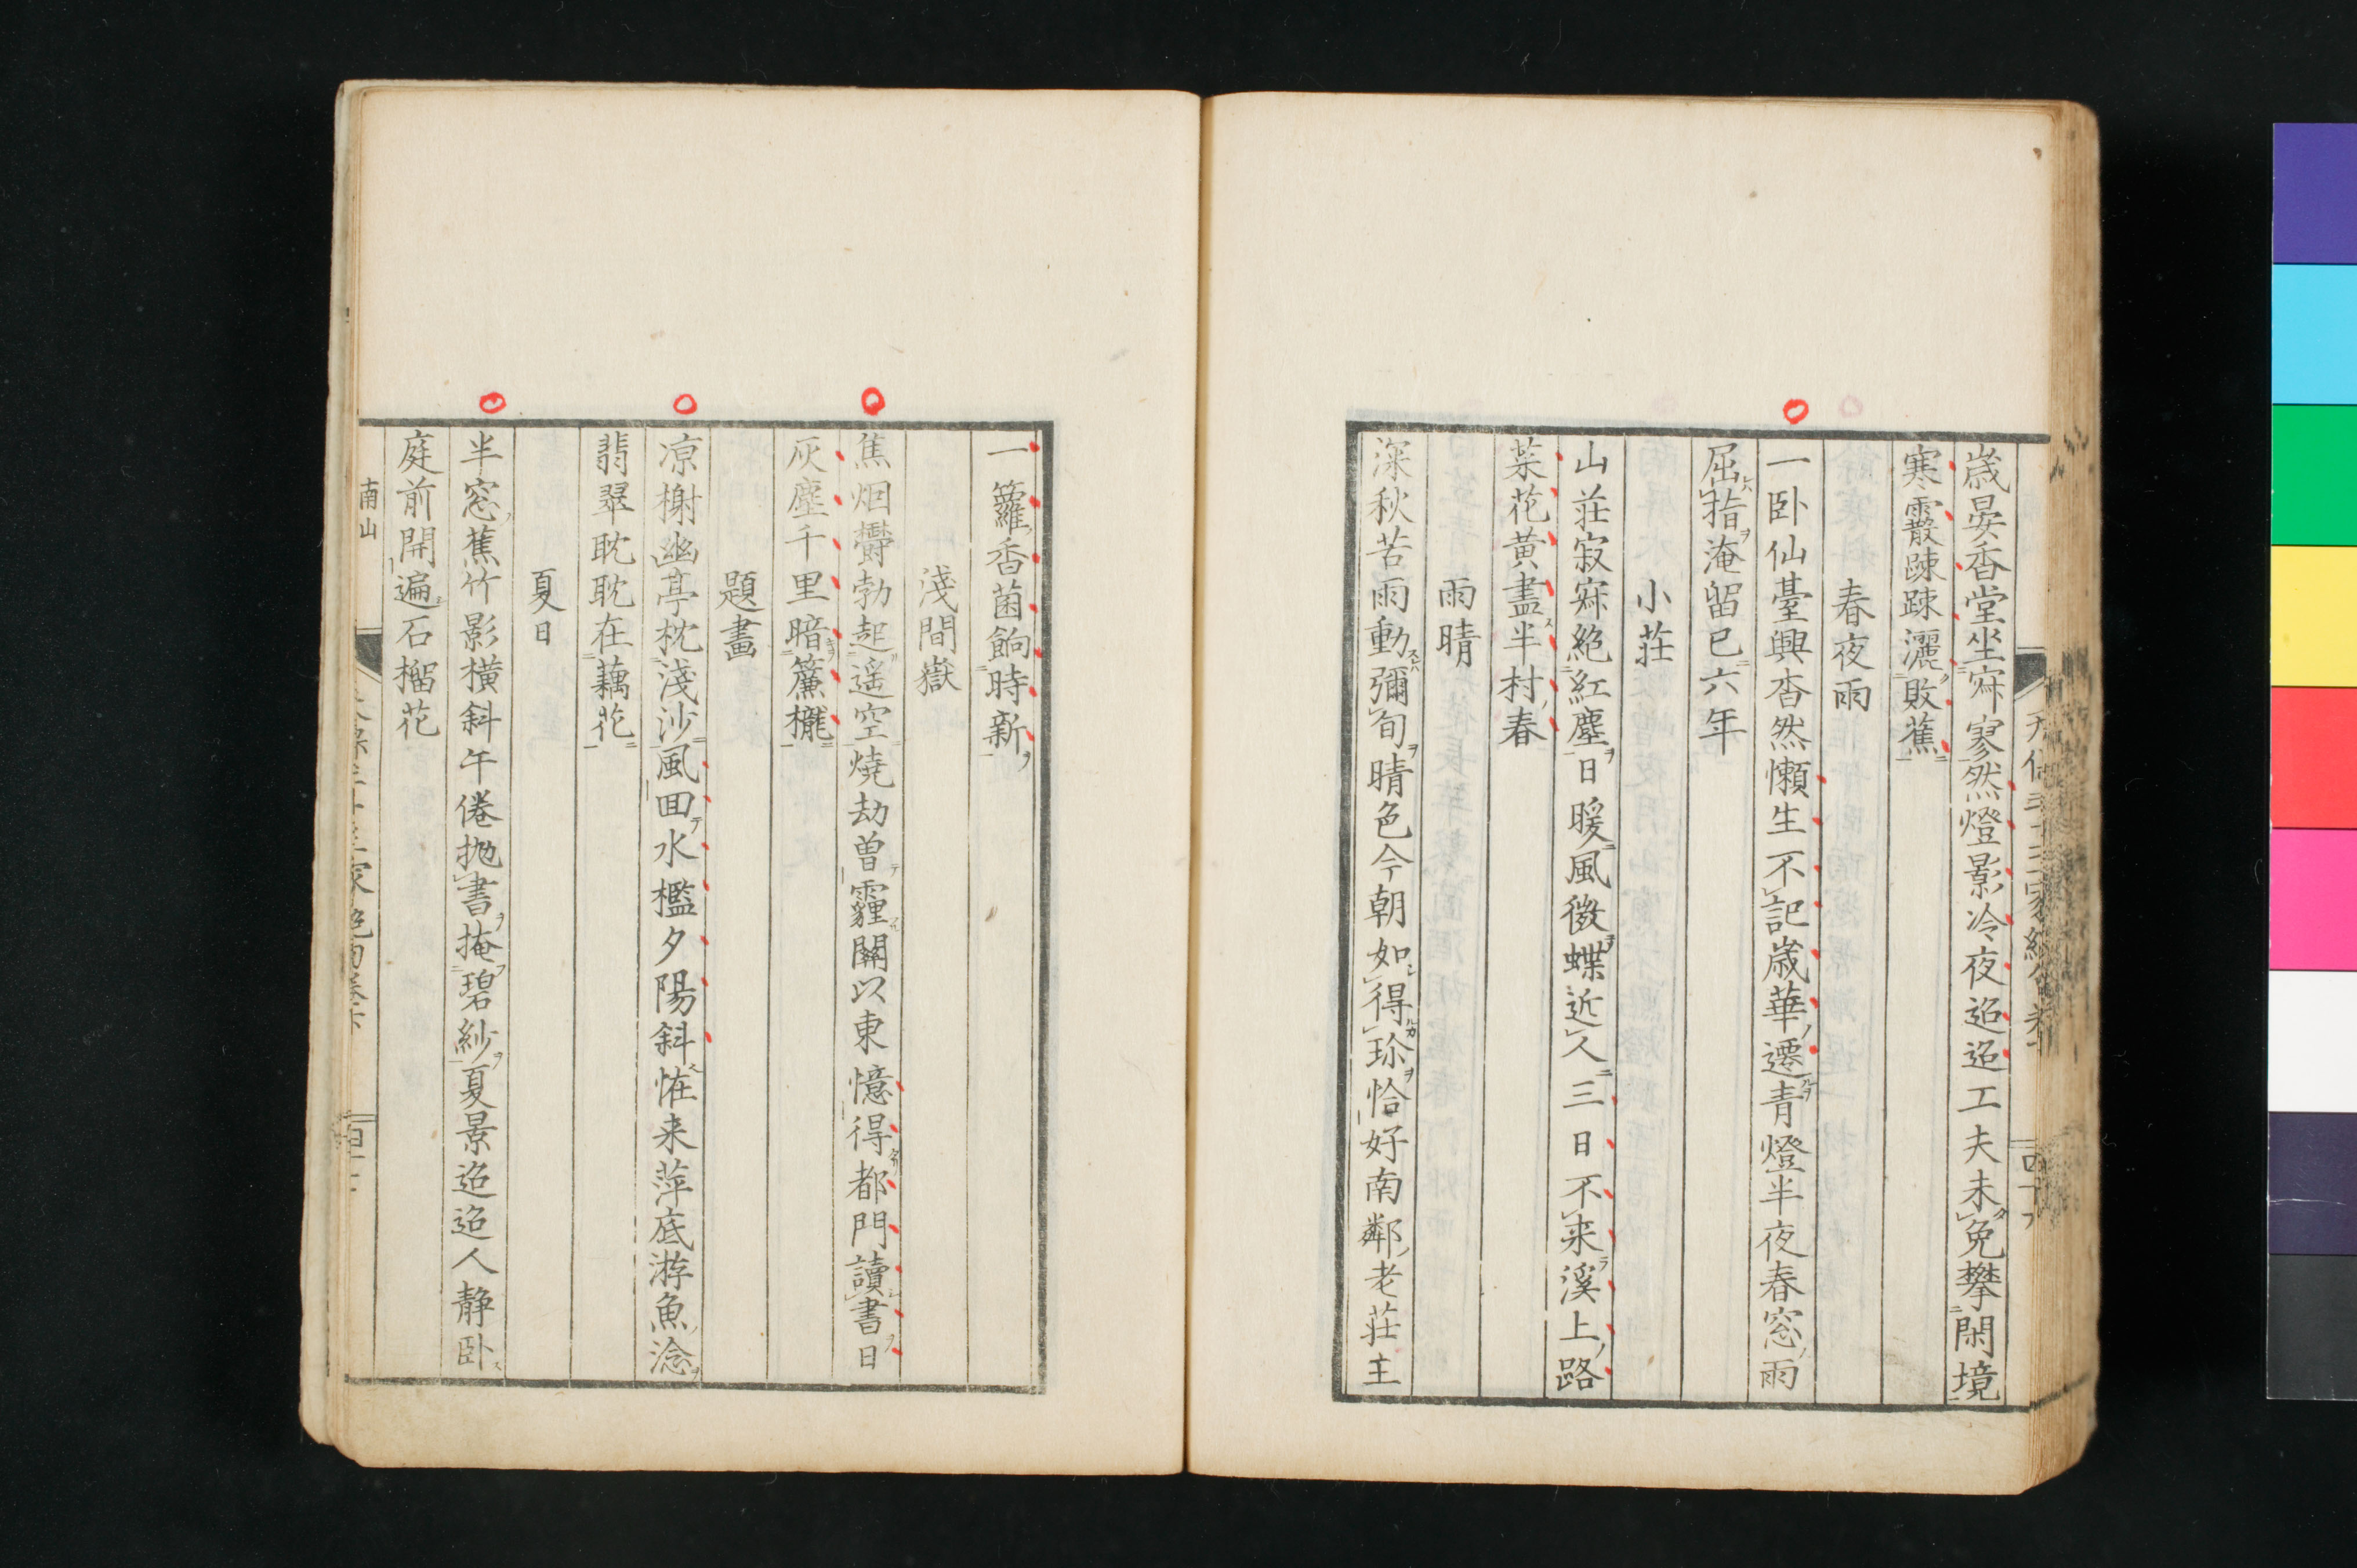 歳晏香堂坐寂寥然燈影冷夜迢迢工夫未免攀閑境
寒霰踈踈灑敗蕉
春夜雨
一卧仙臺興杳然懶生不記歳華遷青燈半夜春窓雨
屈指淹留已六年
小莊
山莊寂寂絶紅塵日暖風微蝶近人三日不来溪上路
菜花黄盡半村春
雨晴
深秋苦雨動彌旬晴色今朝如得珍恰好南鄰老莊主
一籮香菌餉時新
淺間嶽
焦烟欝勃起遥空燒劫曽霾關以東憶得都門讀書日
灰塵千里暗簾櫳
題畫
凉榭幽亭枕淺沙風回水檻夕陽斜恠来萍底游魚淰
翡翠耽耽在藕花
夏日
半窓蕉竹影横斜午倦抛書掩碧紗夏景迢迢人静卧
庭前開遍石榴花
南山